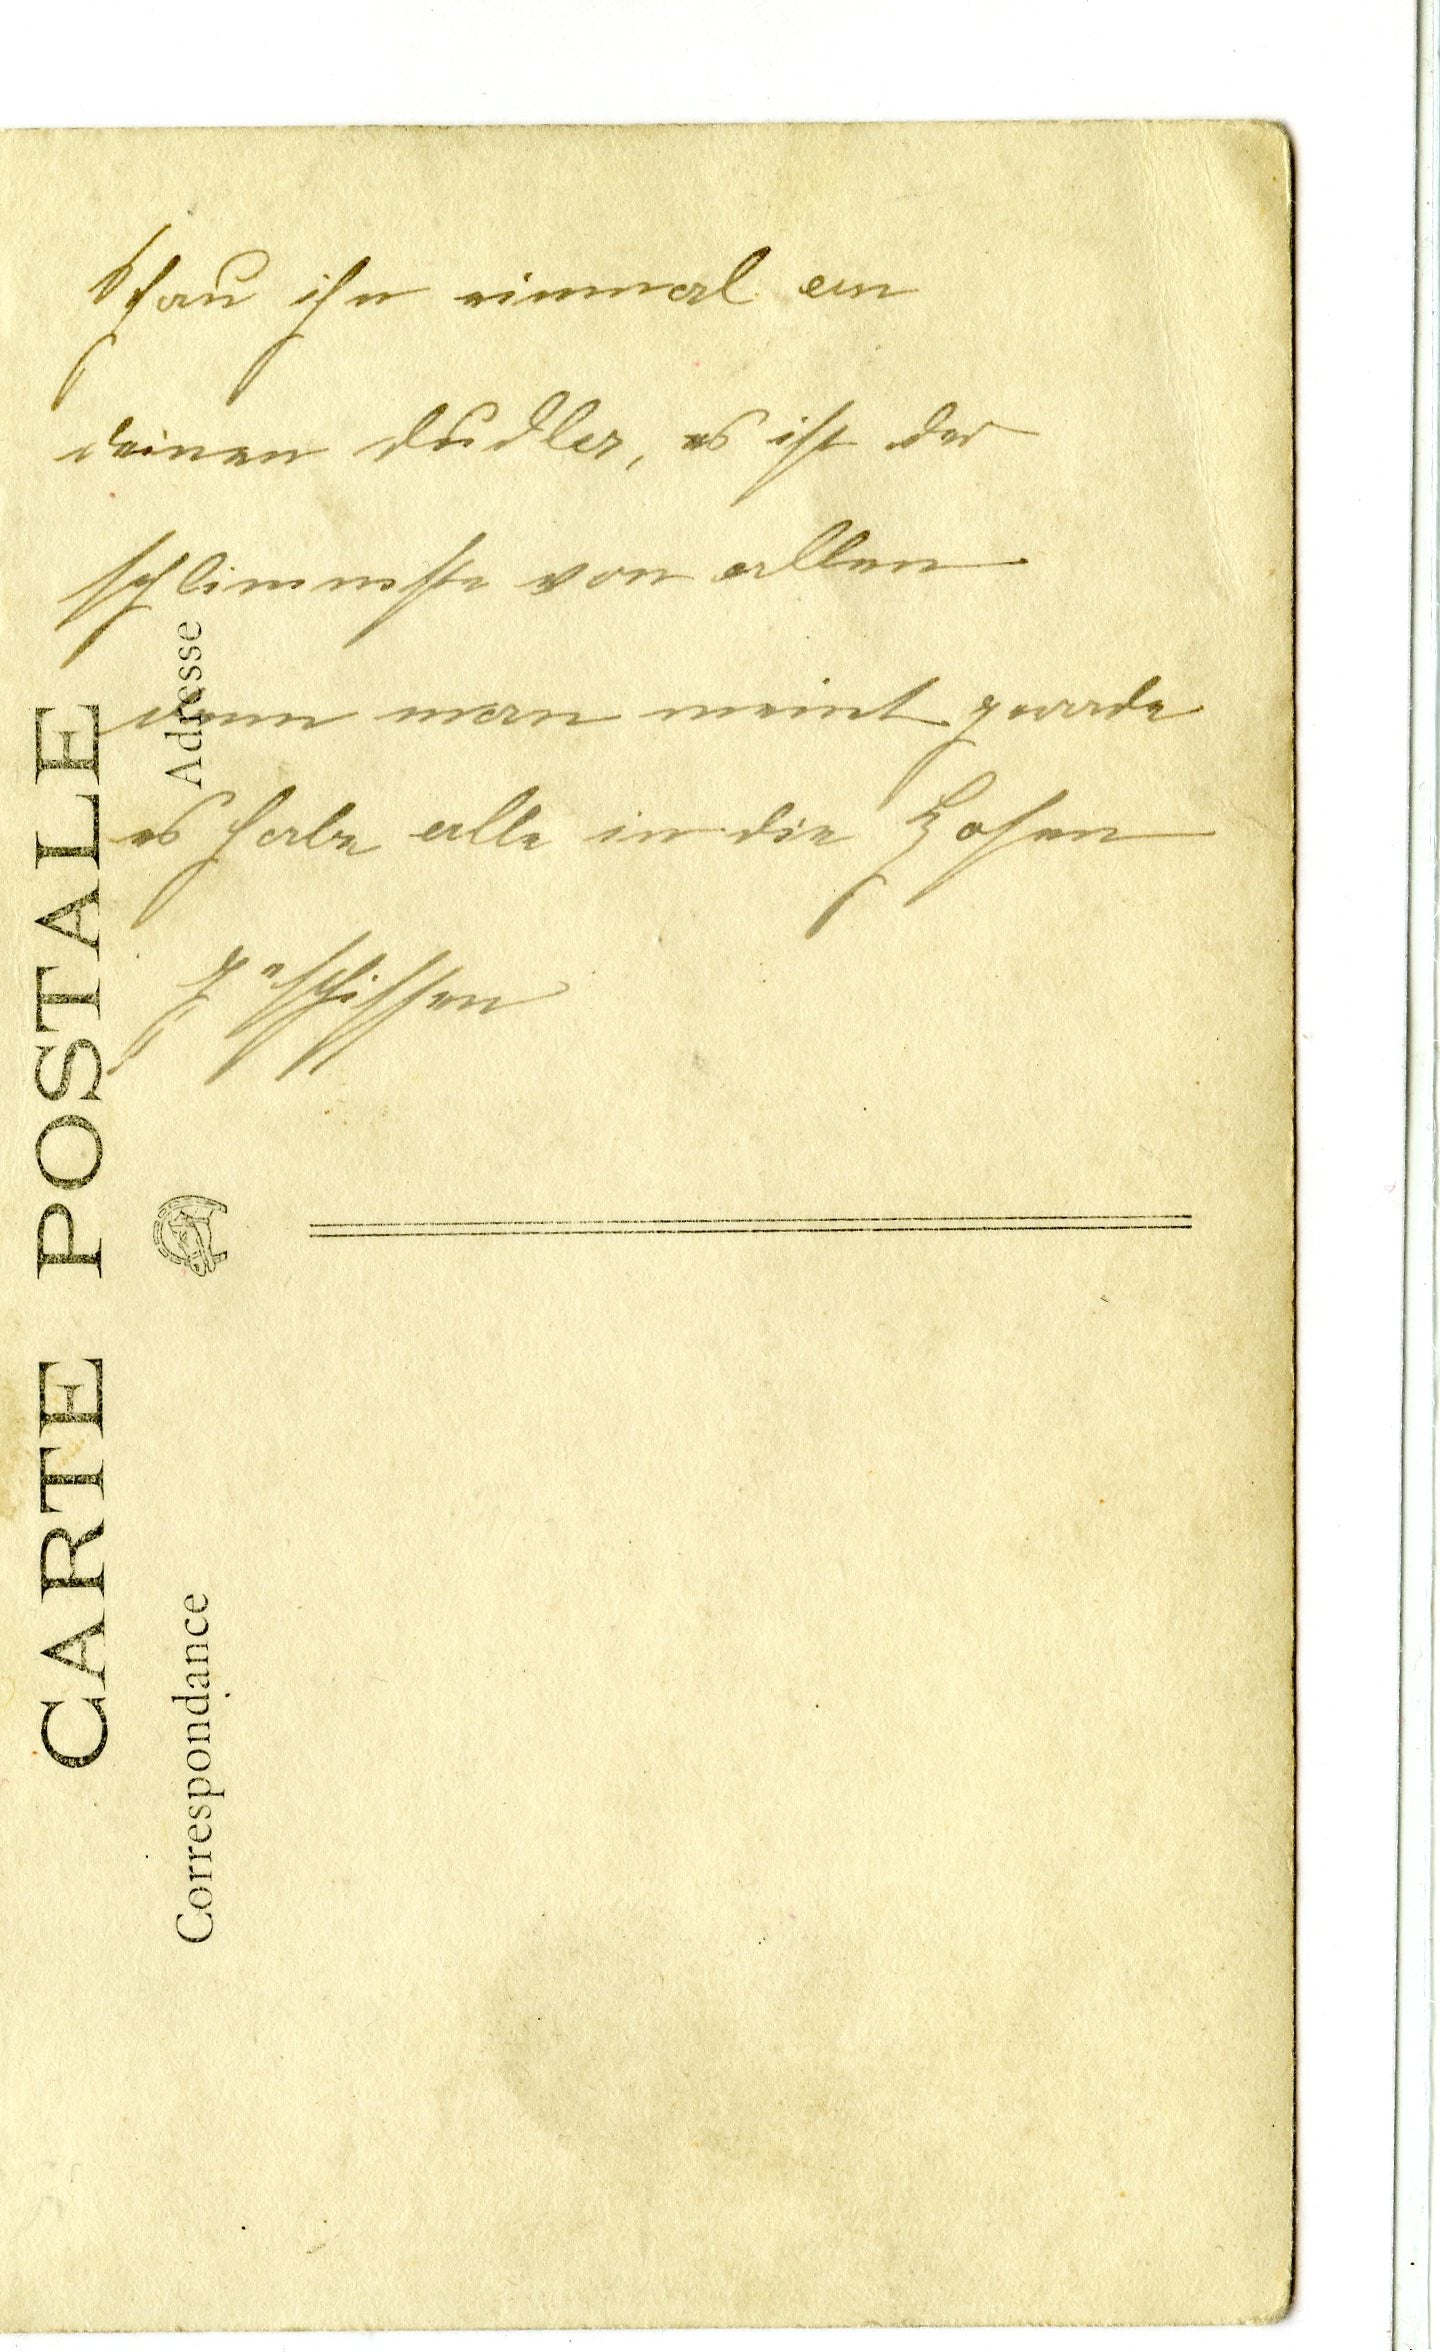 Schau ihn einmal an
deinen dudler, es ist der
schlimmste von allen
denn man meint gerade
es habe alle in die Hosen
geschissen
CARTE POSTALE
Adresse
Correspondance